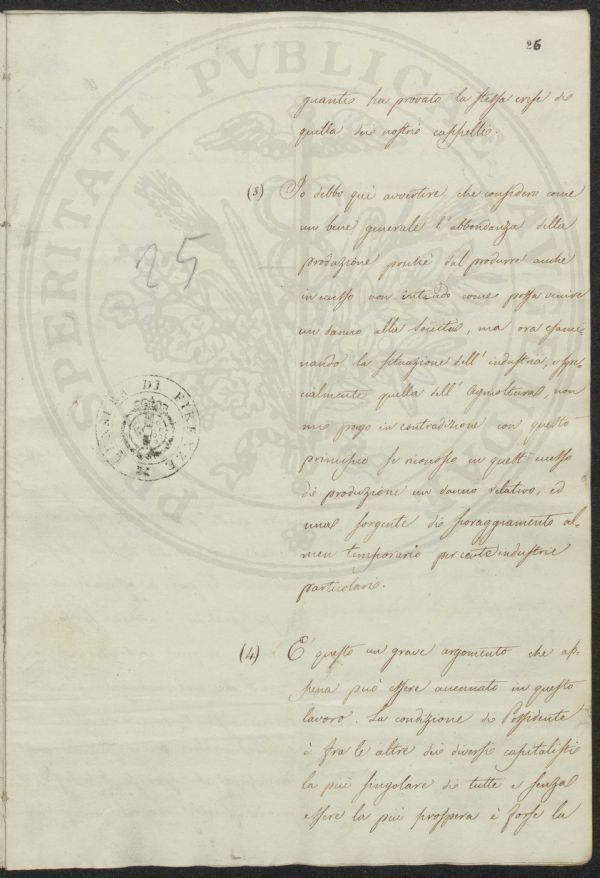 26
quanto ha provato la stessa crise di
quella dei nostri cappelli.
(3) Io debbo quì avvertire, che considero come
un bene generale l'abbondanza della
produzione poichè dal produrre anche
in eccesso non intendo come possa venire
un danno alla Società, ma ora esami-
nando la situazione dell'industria, e spe-
cialmente quella dell'Agricoltura, non
mi pongo in contradizione con questo
principio se riconosco in quest'eccesso
di produzione un danno relativo, ed
una sorgente di scoraggiamento al-
men temporario per certe industrie
particolari.
25
(4) È questo un grave argomento che ap-
pena può essere accennato in questo
lavoro. La condizione di Possidente
è fra le altre dei diversi capitalisti
la più singolare di tutte e senza
essere la più prospera è forse la
PROSPERITATI PUBLICAE
DI FIRENZE